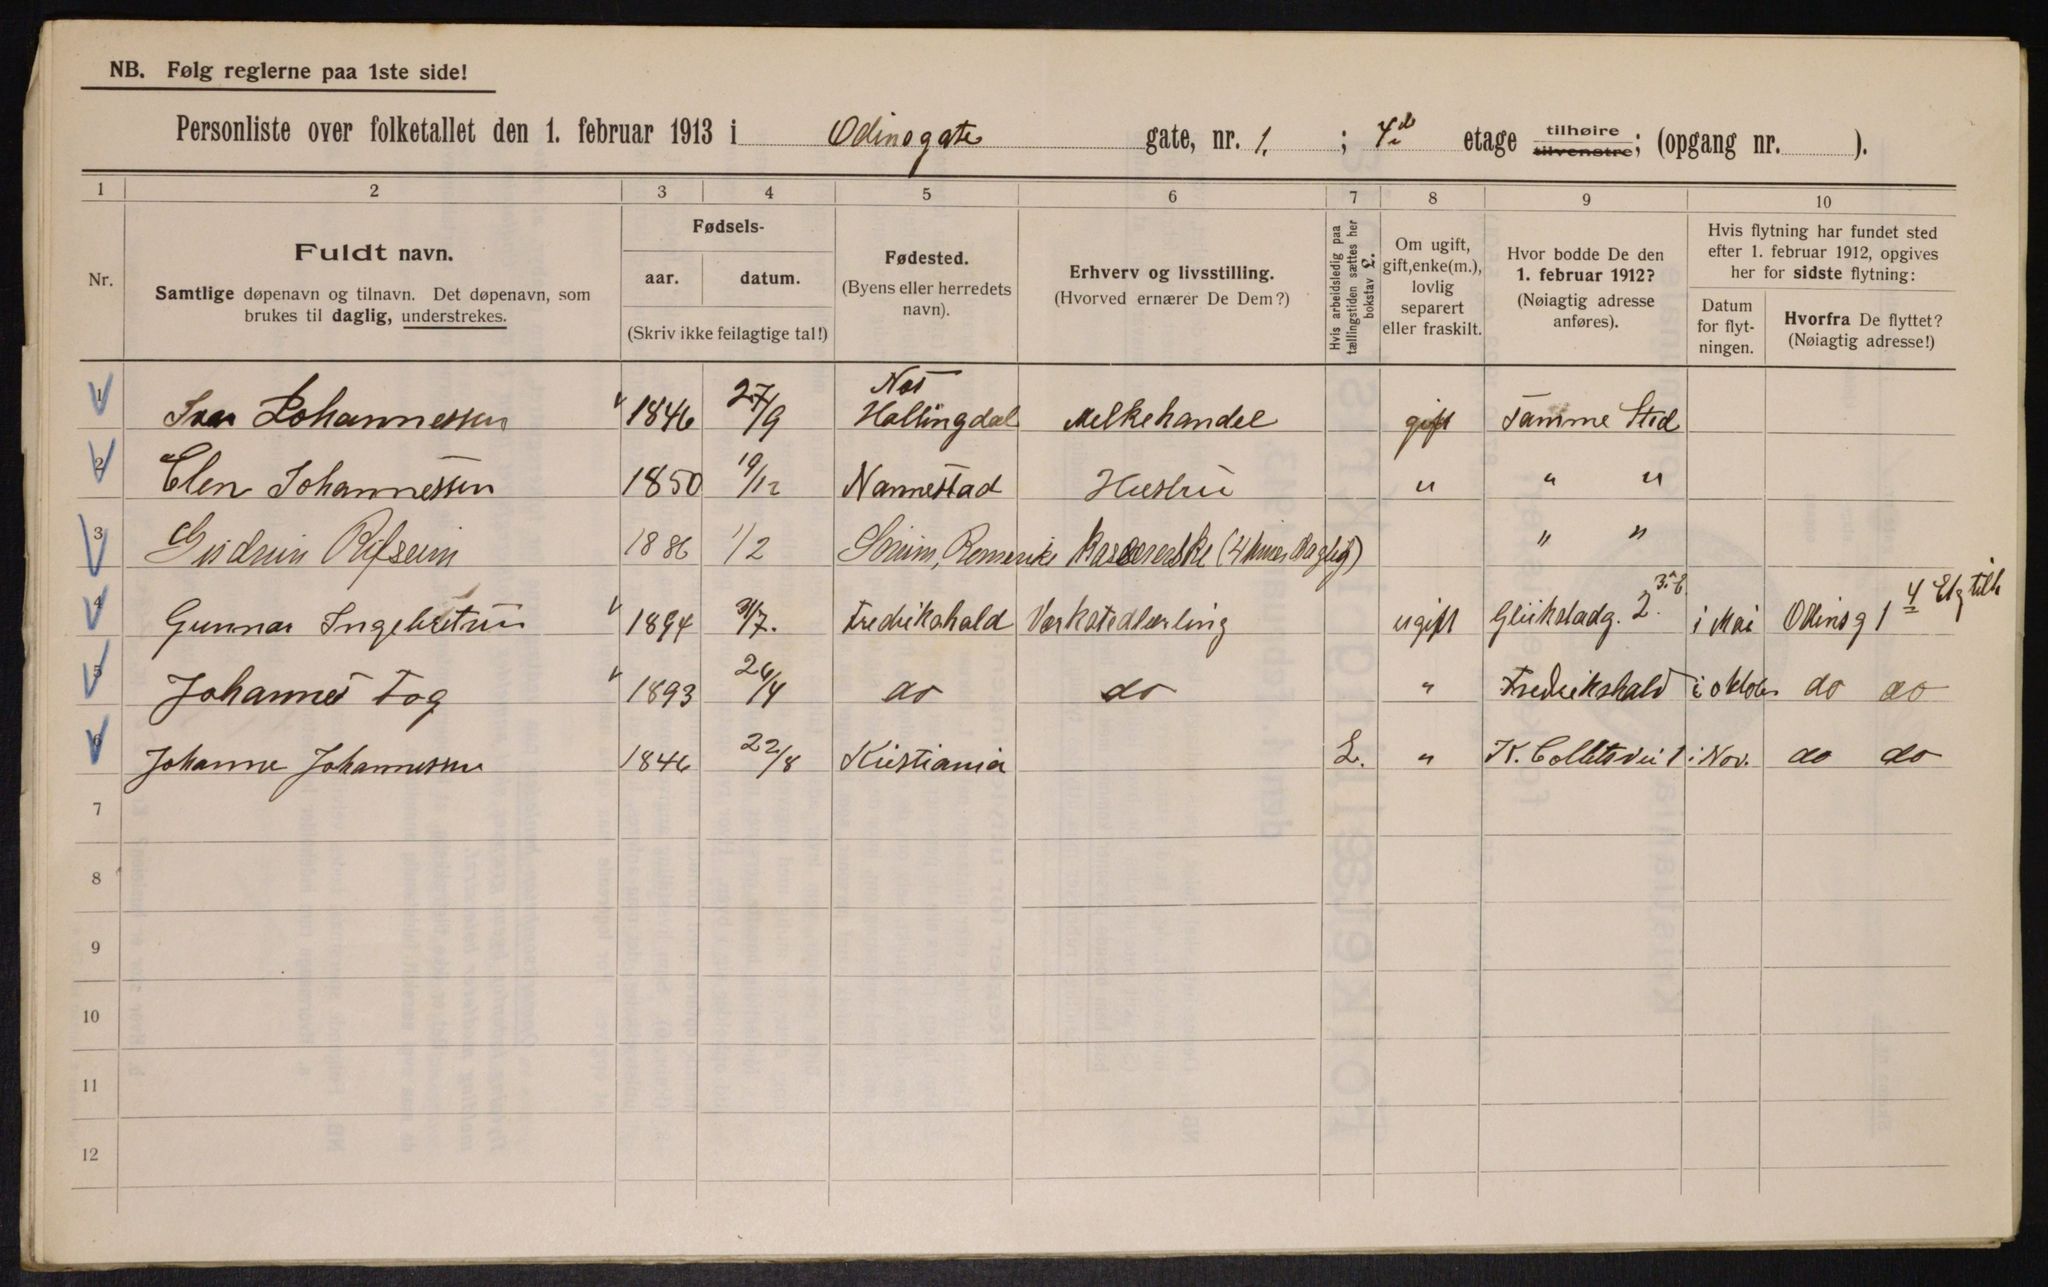 NB. Følg reglerne paa 1ste side!
Personliste over folketallet den 1. februar 1913 i Odinsgate gate, nr. 1. ; 4de etage tilhøire tilvenstre; (opgang nr. ).
1 2 3 4 5 6 7 8 9 10
Nr.
Fuldt navn.
Samtlige døpenavn og tilnavn. Det døpenavn, som
brukes til daglig, understrekes.
Fødsels-
aar. datum.
(Skriv ikke feilagtige tal!)
Fødested.
(Byens eller herredets
navn).
Erhverv og livsstilling.
(Hvorved ernærer De Dem?)
Hvis arbeidsledig paa
tællingstiden sættes her
bokstav L.
Om ugift,
gift, enke(m.),
lovlig
separert
eller fraskilt.
Hvor bodde De den
1. februar 1912?
(Nøiagtig adresse
anføres).
Hvis flytning har fundet sted
efter 1. februar 1912, opgives
her for sidste flytning:
Datum
for flyt-
ningen.
Hvorfra De flyttet?
(Nøiagtig adresse!)
1 Ivar Johannessen 1846 27/9 Nes Hallingdal Melkehandel gift Samme Sted
2 Elen Johannessen 1850 19/12 Nannestad Hustru " " "
3 Gudrun 1886 1/2 Sørum, Romerike (4 Daglig) " "
4 Gunnar Ingebretsen 1894 31/7. Fredrikshald Verkstedlærling ugift 2. i Mai Odinsg 1 4 Etg tilh
5 Johannes Fog 1893 26/4 do do " Fredrikshald i oktober do do
6 Johanne Johannessen 1846 22/8 Kristiania L. " K. Colletsvei 1 i Nov. do do
7
8
9
10
11
12